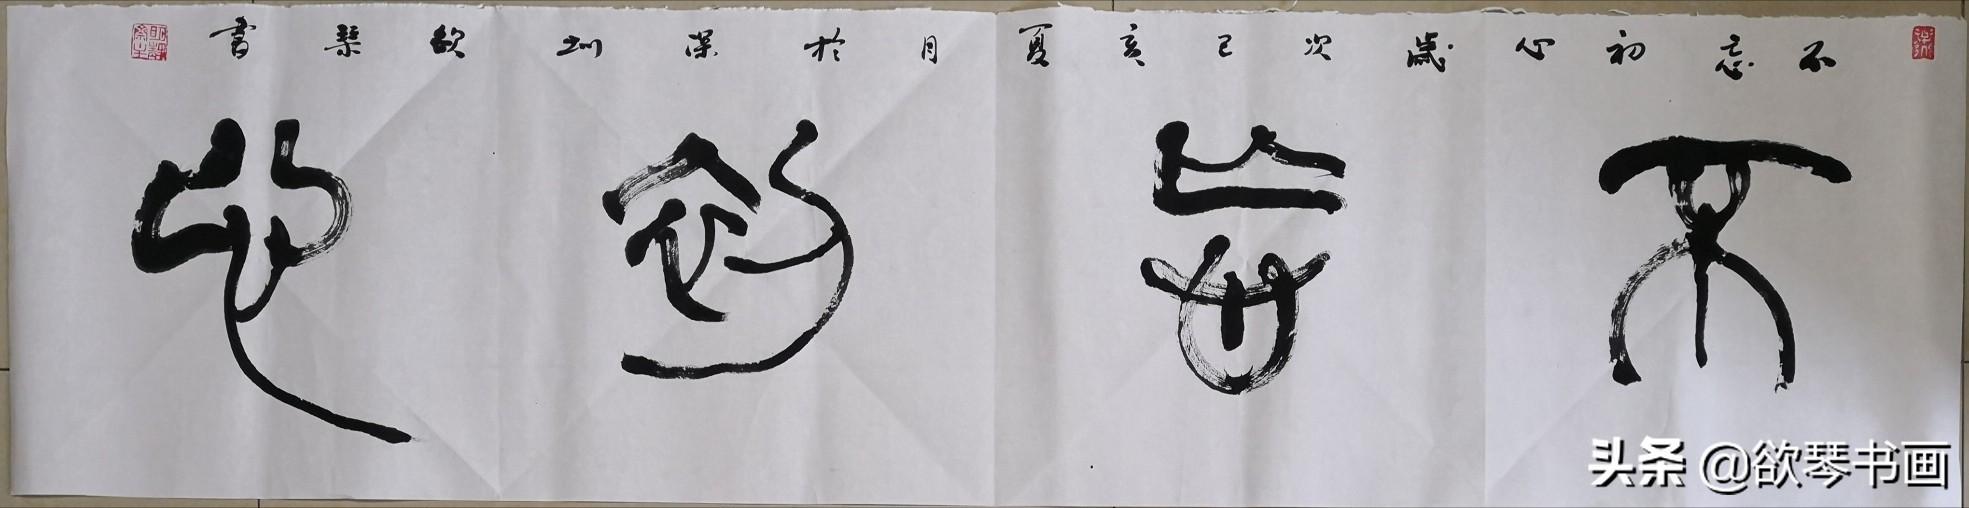 不忘初心岁次己亥夏月於深圳欲琴書
不忘初心
头条 @欲琴书画